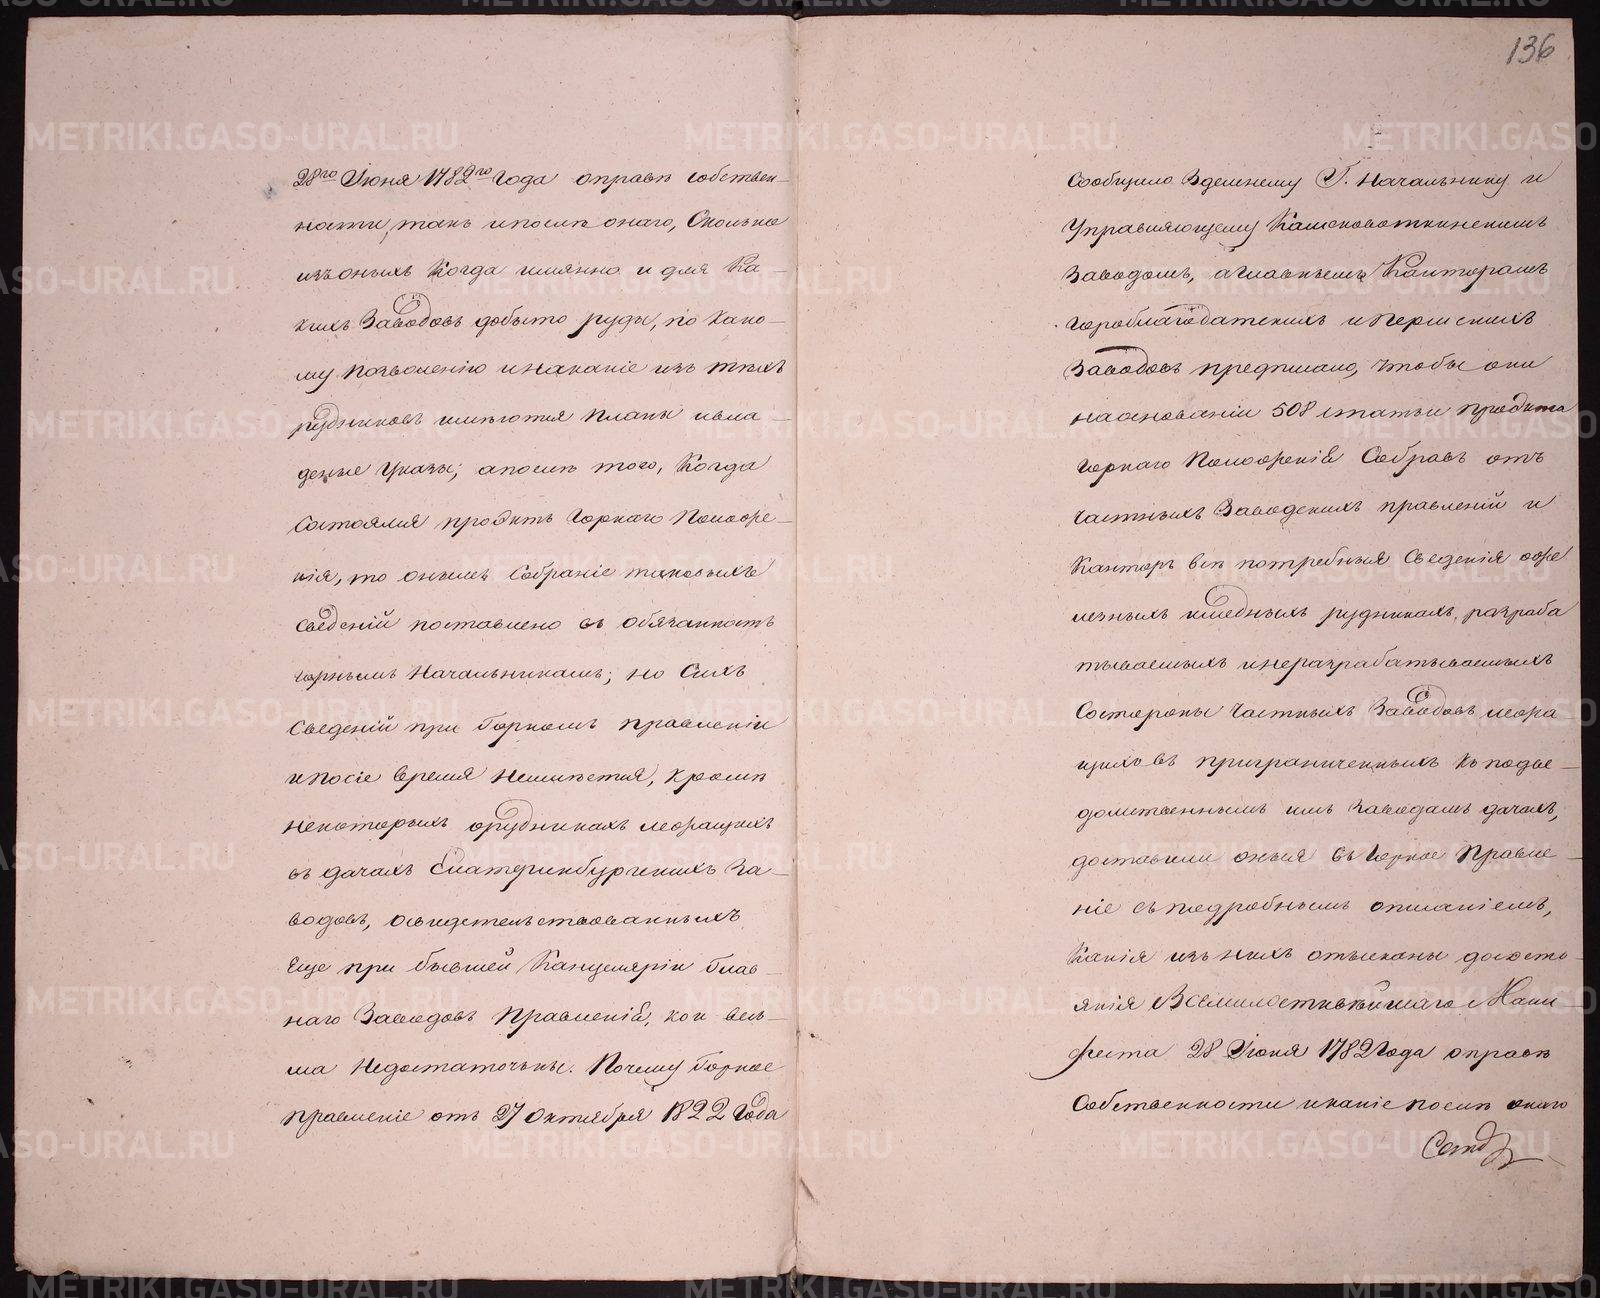 28го Іюня 1782го Года оправѣ собствен-
ности, такъ и послѣ онаго, Сколько
изъ оныхъ Когда имянно и для Ка-
кихъ Заводовъ добыто руды, по како-
му позволенію и накакіе изъ тѣхъ
рудниковъ имѣются планы и вла-
денные Указы; а послѣ того, Когда
Состоялся проэктъ Горнаго Положе-
нія, то онымъ Собраніе таковыхъ
Сведеній поставлено въ обязанность
Горнымъ Начальникамъ; но Сихъ
Сведеній при Горномъ правленіи
и посіе время Неимѣется, кромѣ
некоторыхъ орудникахъ лежащихъ
въ дачахъ Екатеринбургскихъ За-
водовъ, освидетельствованныхъ
Еще при бывшей Канцеляріи Глав-
наго Заводовъ Правленія, кои весь-
ма Недостаточны. Почему Горное
правленіе отъ 27 Октября 1822 Года
136
Сообщило Здешнему Г. Начальнику и
Управляющему Камсковоткинскимъ
Заводомъ, а Главнымъ Канторамъ
Гороблагодатскихъ и Пермскихъ
Заводовъ предписало, чтобы они
на основаніи 508 статьи проэкта
Горнаго Положенія Собравъ отъ
Частныхъ Заводскихъ правленій и
Канторъ всѣ потребныя Сведенія о же
лезныхъ имедныхъ рудникахъ, разраба
тываемыхъ и неразрабатываемыхъ
Состороны Частныхъ Заводовъ лежа
щихъ въ приграниченныхъ къ подве-
домственнымъ имъ Заводамъ дачахъ,
доставили оныя въ Горное Правле-
ніе съ подробнымъ описаніемъ,
Какія изъ нихъ отысканы до состо-
янія Всемилостивѣйшаго Мани-
феста 28 Іюня 1782 Года оправѣ
Собственности и какіе послѣ онаго